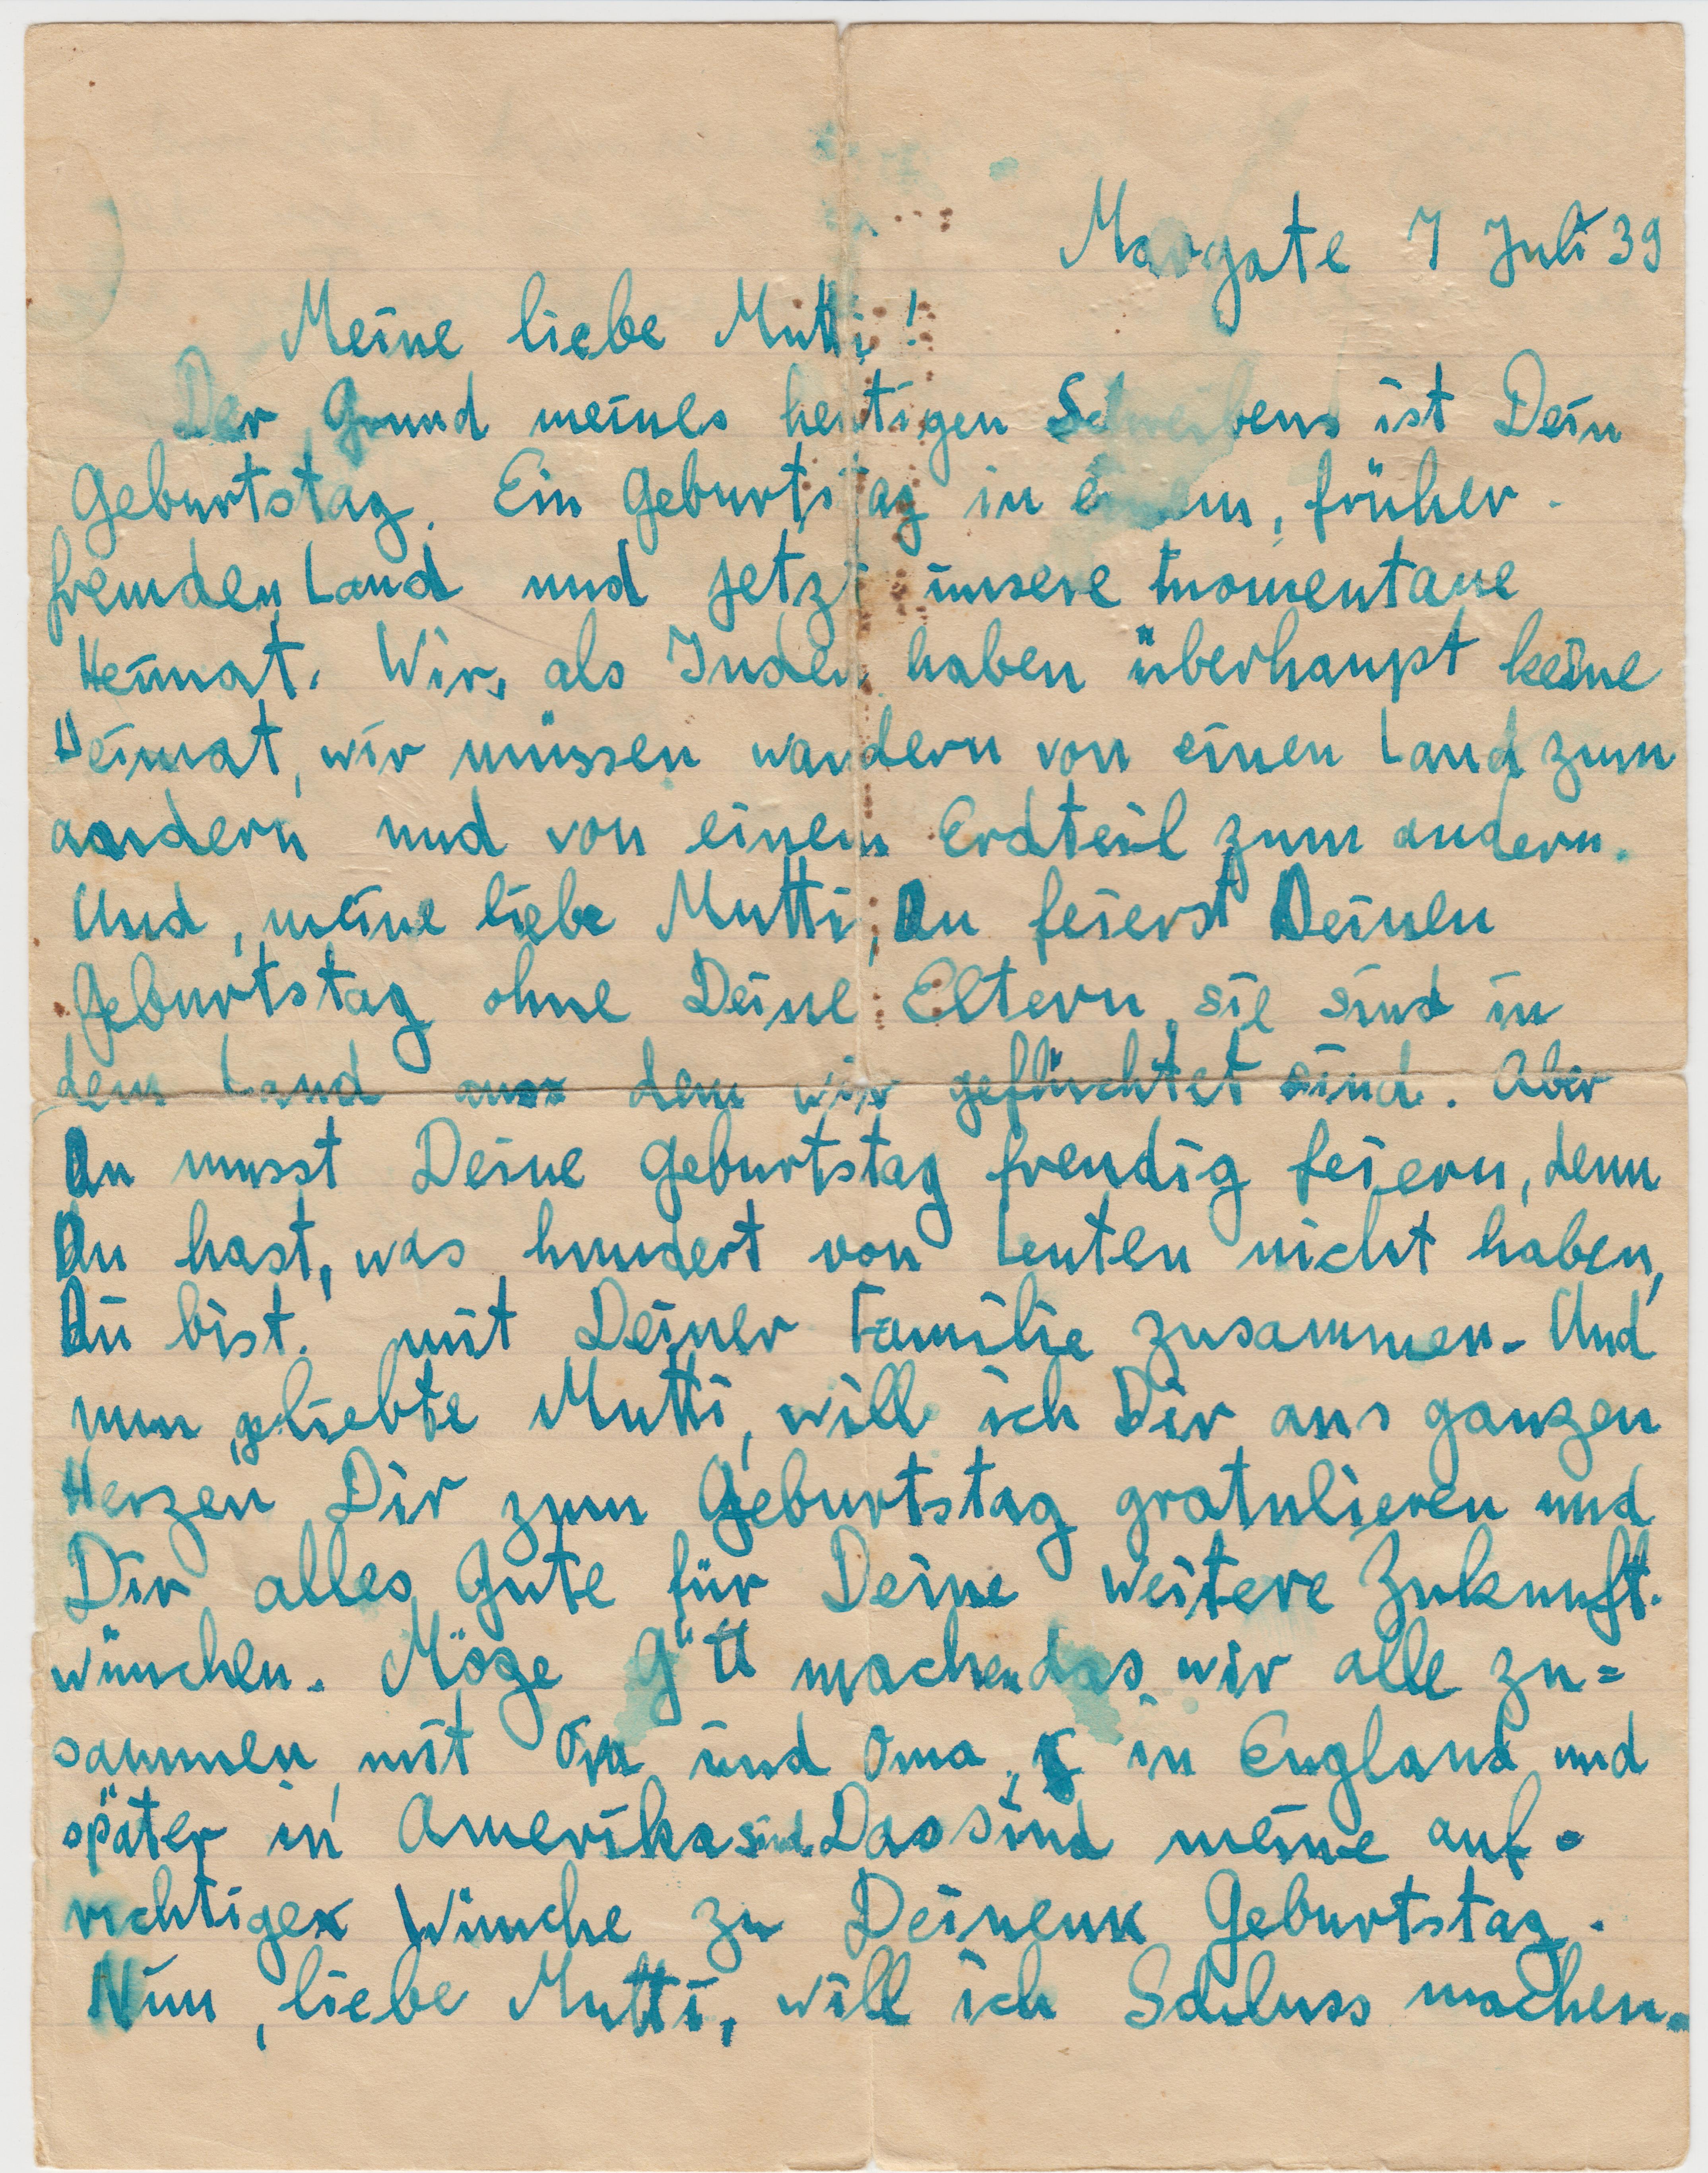 Margate 7 Juli 39
Meine liebe Mutti!
Der Grund meines heutigen Schreibens ist Dein
Geburtstag. Ein Geburtstag in einem, früher
fremden Land und jetzt unsere momentane
Heimat. Wir, als Juden haben überhaupt keine
Heimat, wir müssen wandern von einen Land zum
andern und von einem Erdteil zum andern.
Und, meine liebe Mutti, Du feierst Deinen
Geburtstag ohne Deine Eltern, sie sind in
dem Land aus dem wir geflüchtet sind. Aber
Du musst Deine Geburtstag freudig feiern, denn
Du hast, was hundert von Leuten nicht haben,
Du bist. mit Deiner Familie zusammen. Und
nun, geliebte Mutti, will ich Dir aus ganzen
Herzen Dir zum Geburtstag gratulieren und
Dir alles Gute für Deine weitere Zukunft.
wünchen. Möge Gott machen das wir alle zu=
sammen, mit Opa und Oma, in England und
später in Amerika sind. Das sind meine auf=
richtigen Wünche zu Deinem Geburtstag.
Nun, liebe Mutti, will ich Schluss machen.